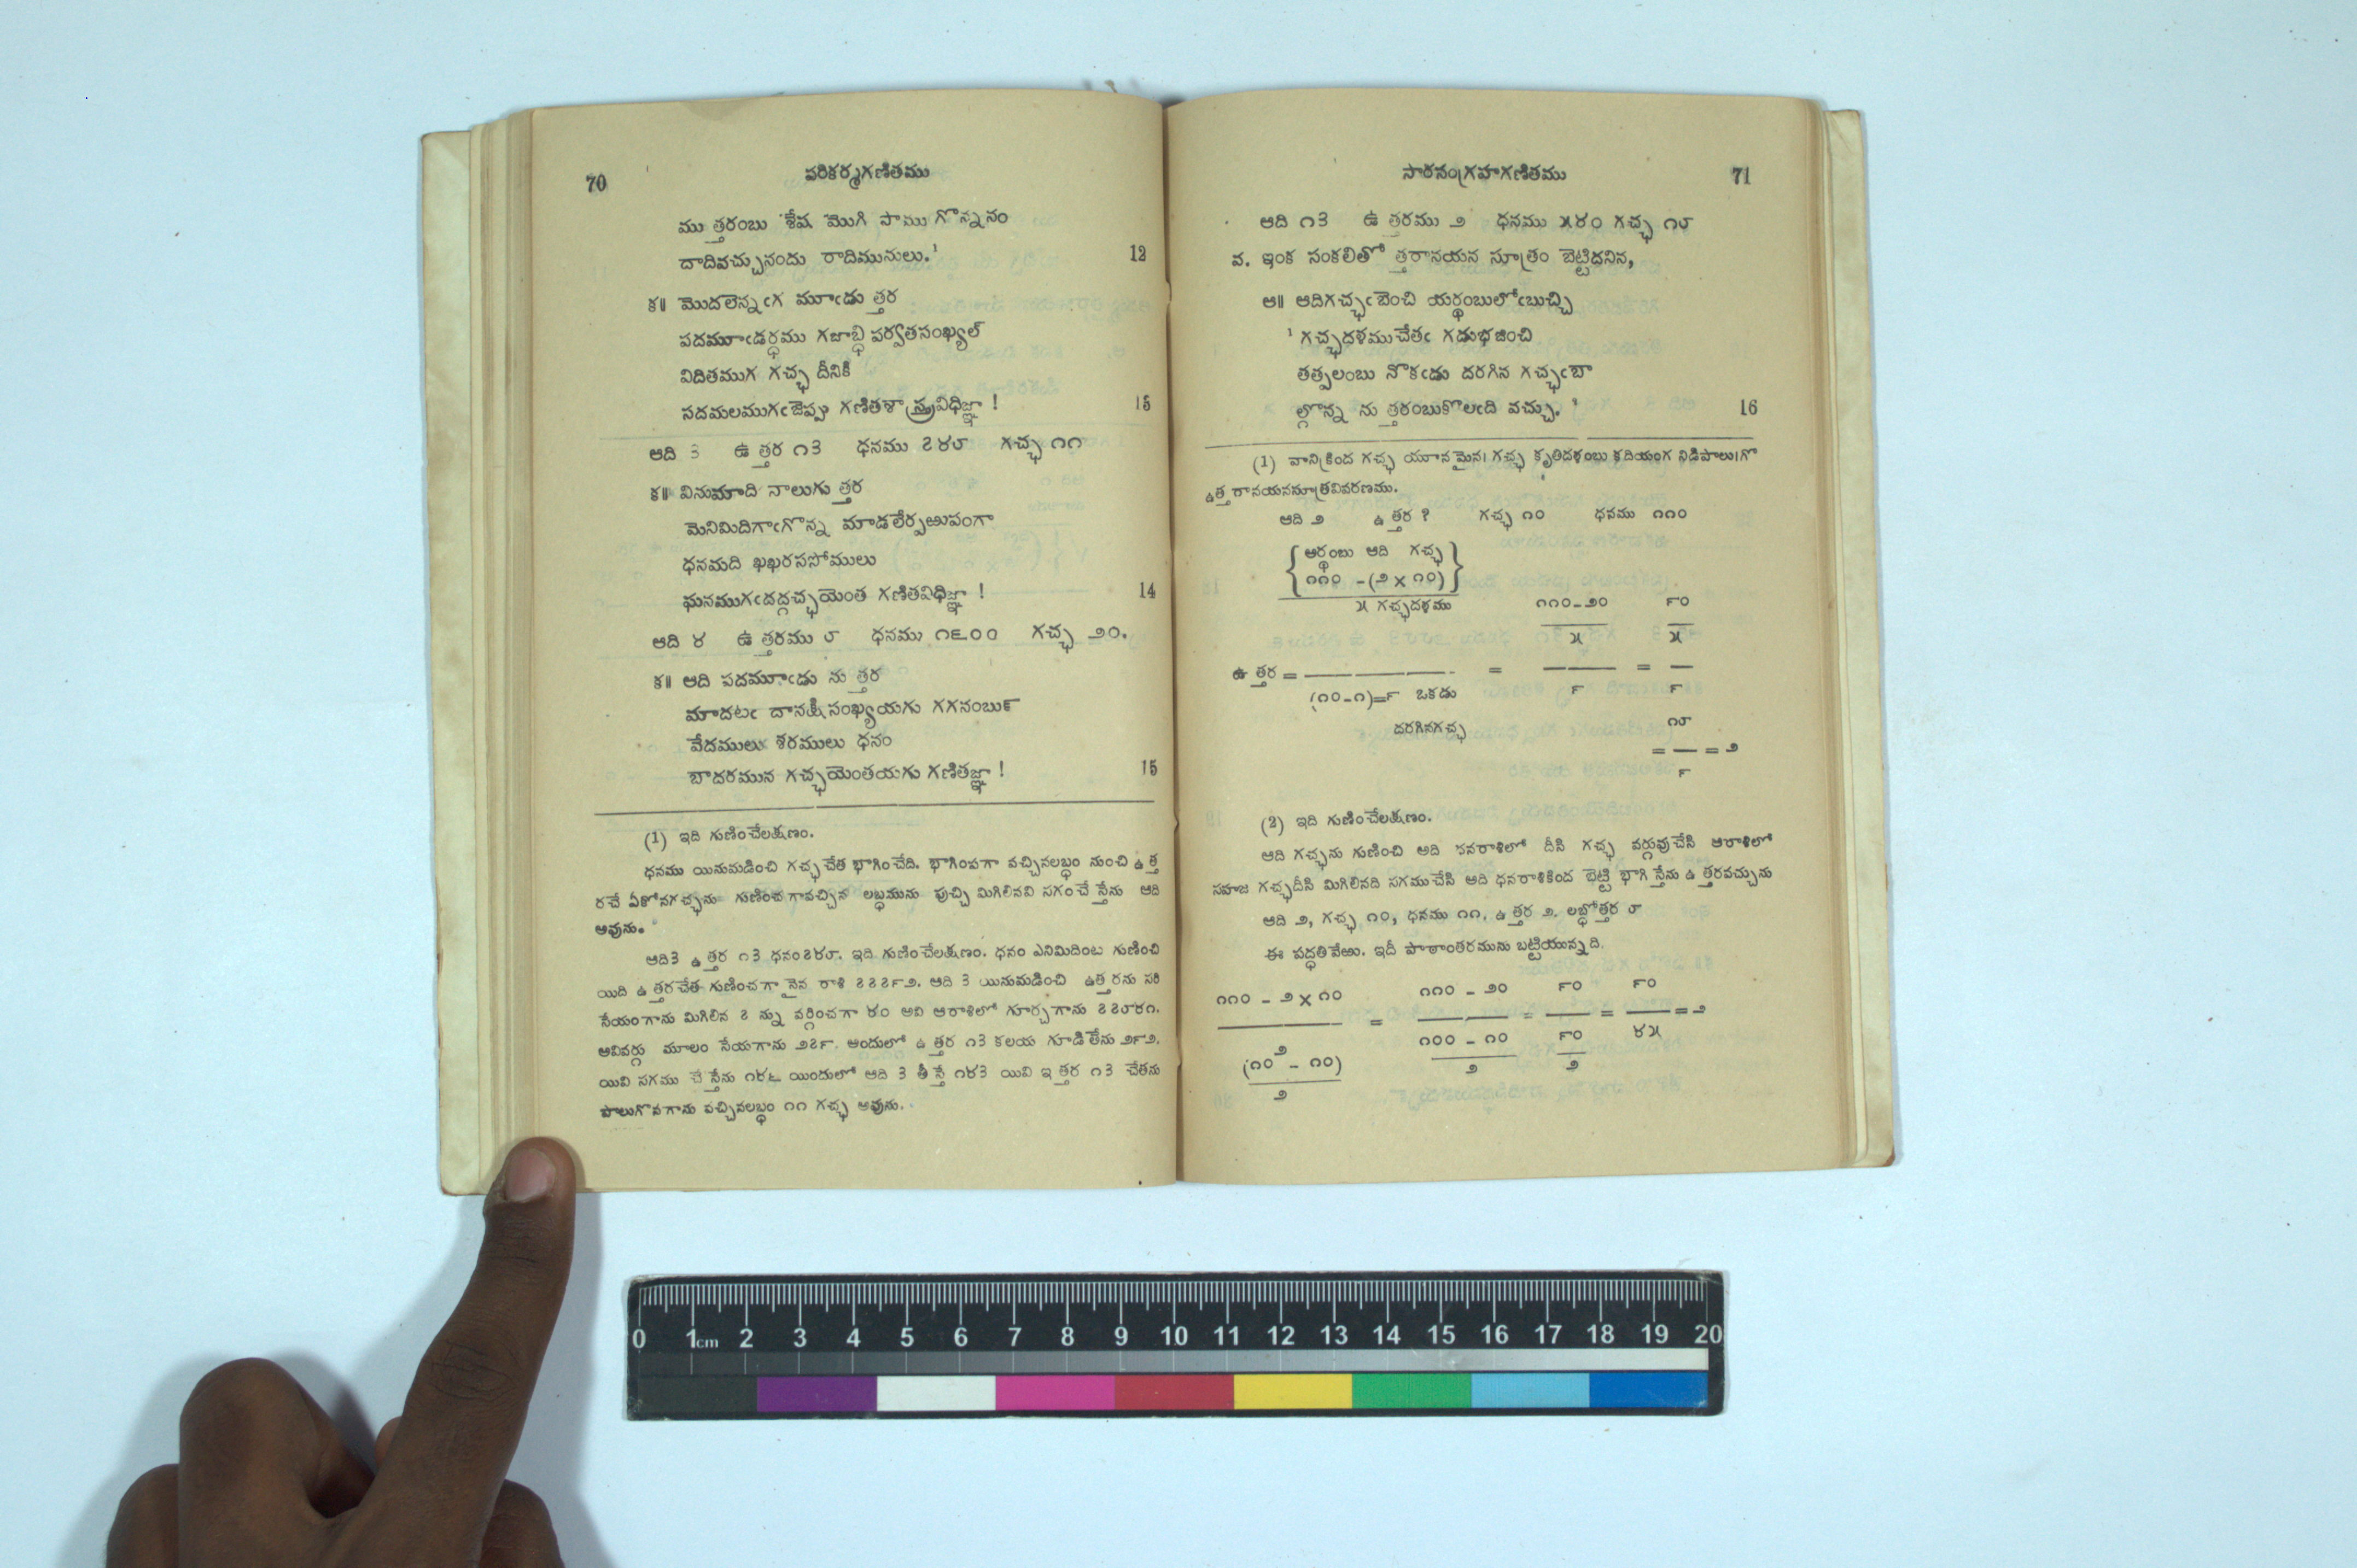 70 పరికర్మగణితము
ము త్తరంబు శేష మొగి పాము గొన్ననం
దాదివచ్చునందు రాదిమునులు.¹ 12
క॥ మొదలెన్నఁగ మూఁడు త్తర
పదమూఁడర్ధము గజాబ్ధి పర్వతసంఖ్యల్
విదితముగ గచ్ఛ దీనికి
సదమలముగఁజెప్పు గణితశాస్త్రవిధిజ్ఞా ! 15
ఆది 3 ఉ త్తర ౧౩ ధనము ౭౪౮ గచ్ఛ ౧౧
క॥ వినుమాది నాలుగు త్తర
మెనిమిదిగాఁగొన్న మాడలేర్పఱుపంగా
ధనమది ఖఖరససోములు
ఘనముగఁదద్గచ్ఛయెంత గణితవిధిజ్ఞా ! 14
ఆది ౪ ఉ త్తరము ౮ ధనము ౧౬౦౦ గచ్ఛ ౨౦.
క॥ ఆది పదమూఁడు ను త్తర
మాదటఁ దానక్షిసంఖ్యయగు గగనంబు౯
వేదములు శరములు ధనం
బాదరమున గచ్ఛయెంతయగు గణితజ్ఞా ! 15
(1) ఇది గుణించేలక్షణం.
ధనము యినుమడించి గచ్ఛచేత భాగించేది. భాగింపగా వచ్చినలబ్ధం నుంచి ఉత్త
రచే ఏకోనగచ్ఛను గుణించగావచ్చిన లబ్ధమును పుచ్చి మిగిలినవి సగంచేస్తేను ఆది
అవును.
ఆది౩ ఉ త్తర ౧౩ ధనం౭౪౮. ఇది గుణించేలక్షణం. ధనం ఎనిమిదింట గుణించి
యిది ఉ త్తరచేత గుణించగా నైన రాశి ౭౭౭౯౨. ఆది ౩ యినుమడించి ఉత్తరను సరి
సేయంగాను మిగిలిన ౭ న్ను వర్గించగా ౪౦ అవి ఆరాశిలో గూర్చగాను ౭౭౮౪౧.
అవివర్గు మూలం సేయగాను ౨౭౯. అందులో ఉ త్తర ౧౩ కలయ గూడితేను ౨౯౨.
యివి సగము చేస్తేను ౧౪౬ యిందులో ఆది ౩ తీస్తే ౧౪౩ యివి ఇ త్తర ౧౩ చేతను
పాలుగొనగాను వచ్చినలబ్ధం ౧౧ గచ్ఛ అవును.
సారసంగ్రహగణితము 71
ఆది ౧౩ ఉ త్తరము ౨ ధనము ౫౪౦ గచ్ఛ ౧౮
వ. ఇంక సంకలితోత్తరానయన సూత్రం బెట్టిదనిన,
ఆ॥ ఆదిగచ్ఛఁబెంచి యర్థంబులోఁబుచ్చి
¹ గచ్ఛదళముచేతఁ గడుభజించి
తత్ఫలంబు నొకఁడు దరగిన గచ్ఛఁబా
ల్గొన్న ను త్తరంబుకొలఁది వచ్చు.² 16
(1) వానిక్రింద గచ్ఛ యూనమైన। గచ్ఛ కృతిదళంబు కదియంగ నిడిపాలు।గొ
ఉత్త రానయనసూత్రవివరణము.
ఆది ౨ ఉ త్తర ? గచ్ఛ ౧౦ ధనము ౧౧౦
{ఆర్థంబు ఆది గచ్ఛ}
{౧౧౦ -(౨ × ౧౦)}
౫ గచ్ఛదళము ౧౧౦-౨౦ ౯౦
౫ ౫
ఉ త్తర = ——— = ——— = —
(౧౦-౧)=౯ ఒకడు ౯ ౯
దరగినగచ్ఛ ౧౮
= — = ౨
౯
(2) ఇది గుణించేలక్షణం.
ఆది గచ్ఛను గుణించి అది ధనరాశిలో దీసి గచ్ఛ వర్గువుచేసి ఆరాశిలో
సహజ గచ్ఛదీసి మిగిలినది సగముచేసి ఆది ధనరాశిక్రింద బెట్టి భాగిస్తేను ఉ త్తరవచ్చును
ఆది ౨, గచ్ఛ ౧౦, ధనము ౧౧, ఉ త్తర ౨. లబ్ధోత్తర ౮
ఈ పద్ధతివేఱు. ఇదీ పాఠాంతరమును బట్టియున్నది.
౧౧౦ - ౨ × ౧౦ ౧౧౦ - ౨౦ ౯౦ ౯౦
——— = ——— = — = — = ౨
(౧౦² - ౧౦) ౧౦౦ - ౧౦ ౯౦ ౪౫
౨ ౨ ౨
0 1cm 2 3 4 5 6 7 8 9 10 11 12 13 14 15 16 17 18 19 20